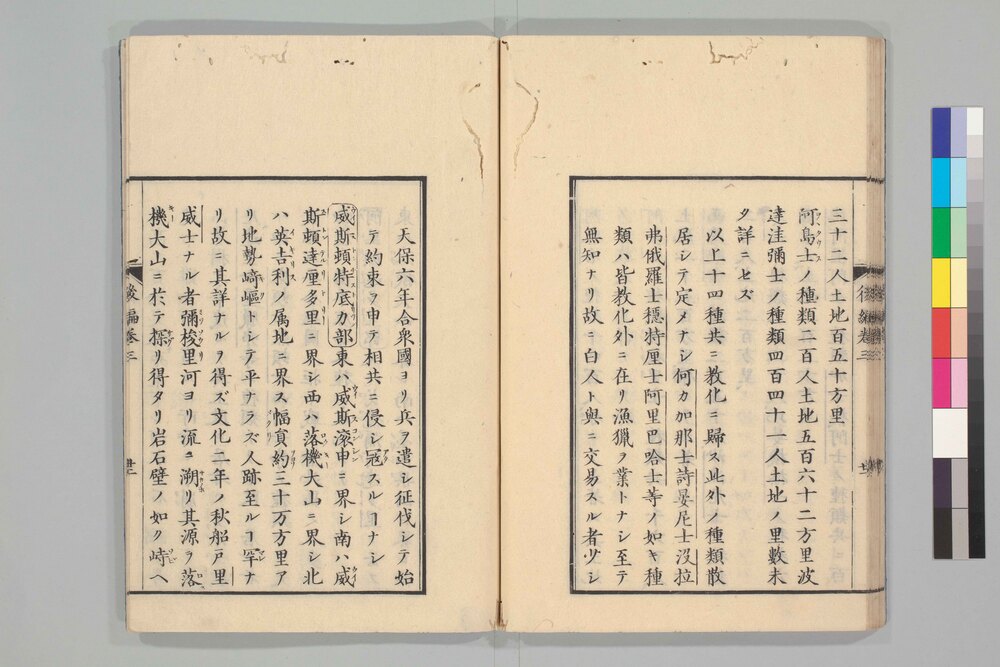 三十二人土地百五十方里
阿烏士ノ種類二百人土地五百六十二方里波
達洼彌士ノ種類四百四十一人土地ノ里數未
タ詳ニセズ
以上十四種共ニ教化ニ歸ス此外ノ種類散
居シテ定メナシ何カ加那士詩晏尼士沒拉
弗俄羅士穩特厘士阿里巴哈士等ノ如キ種
類ハ皆教化外ニ在リ漁獵ヲ業トナシ至テ
無知ナリ故ニ白人ト與ニ交易スル者少シ
天保六年合衆國ヨリ兵ヲ遣シ征伐シテ始
テ約束ヲ申テ相共ニ侵シ冦スルヿナシ
威斯頓特底力部東ハ威斯滾申ニ界シ南ハ威
斯頓達厘多里ニ界シ西ハ落機大山ニ界シ北
ハ英吉利ノ属地ニ界ス幅員約三十万方里ア
リ地勢崎嶇トシテ平ナラズ人跡至ルヿ罕ナ
リ故ニ其詳ナルヲ得ズ文化二年ノ秋船戸里
威士ナル者彌梭里河ヨリ流ニ溯リ其源ヲ落
機大山ニ於テ探リ得タリ岩石壁ノ如ク峙ヘ
後編卷三